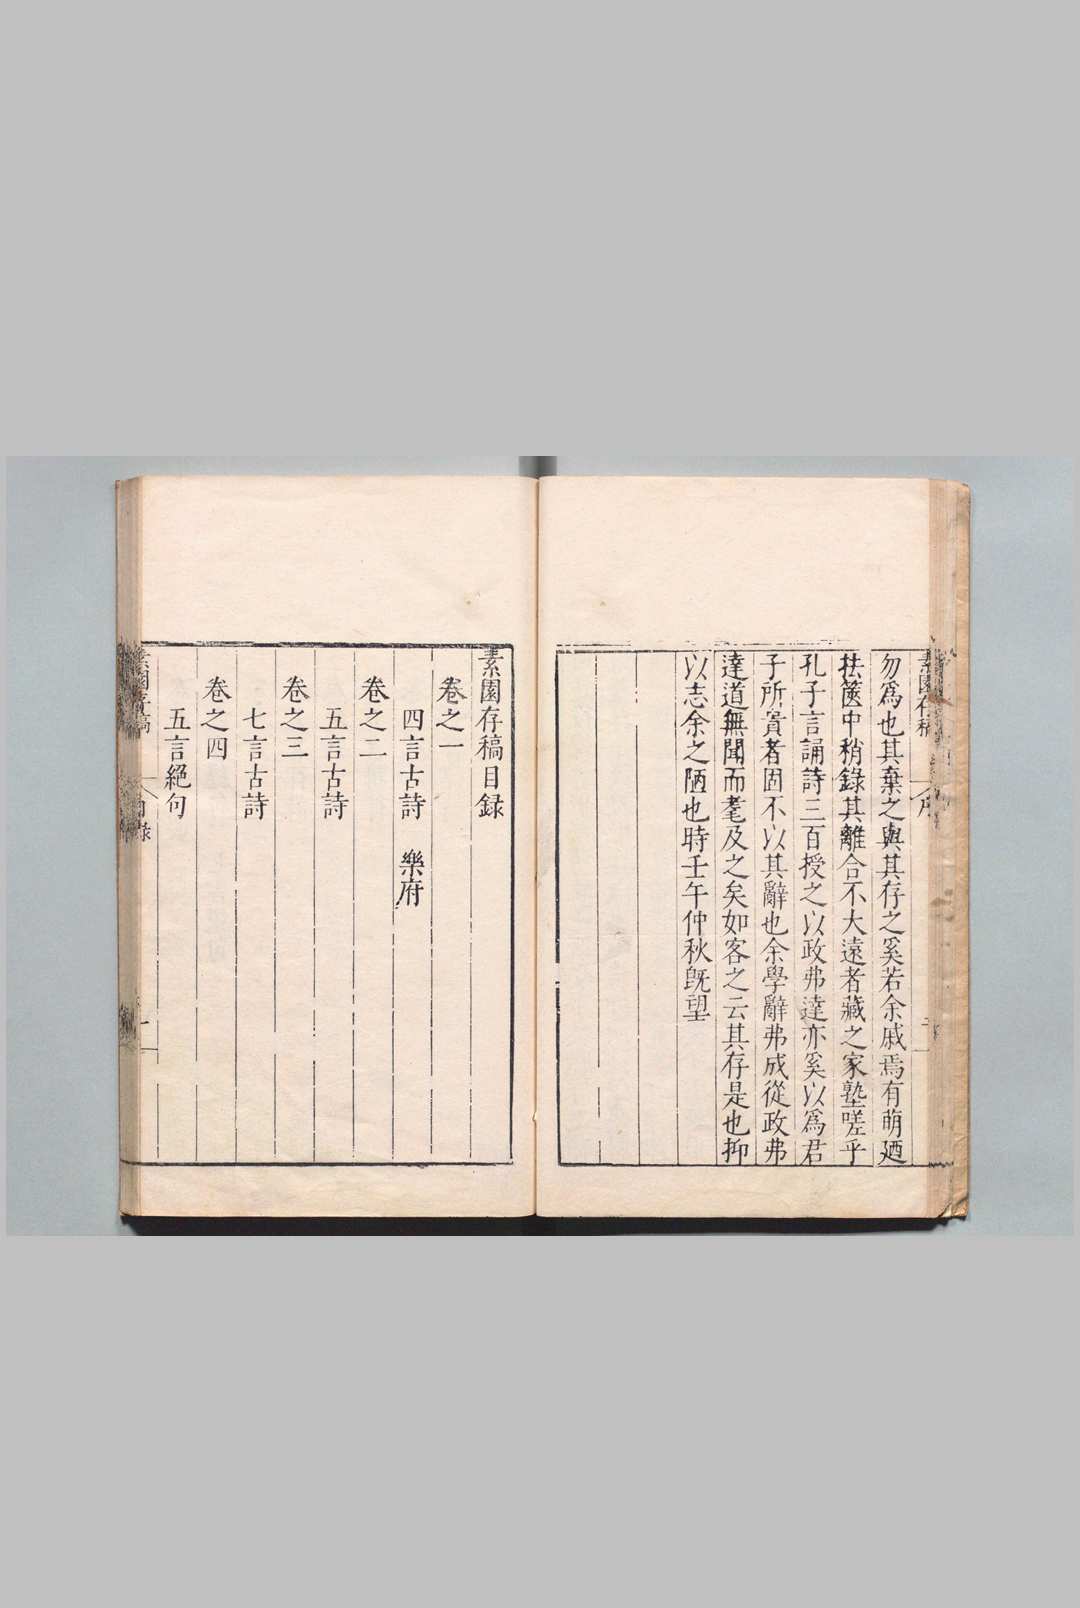 勿為也其棄之與其存之奚若余戚焉有萌廼
祛篋中稍錄其離合不大遠者藏之家塾嗟乎
孔子言誦詩三百授之以政弗達亦奚以為君
子所貴者固不以其辭也余學辭弗成從政弗
達道無聞而耄及之矣如客之云其存是也抑
以志余之陋也時壬午仲秋旣望
素園存稿目録
卷之一
四言古詩　樂府
卷之二
五言古詩
卷之三
七言古詩
卷之四
五言絕句
素園存稿